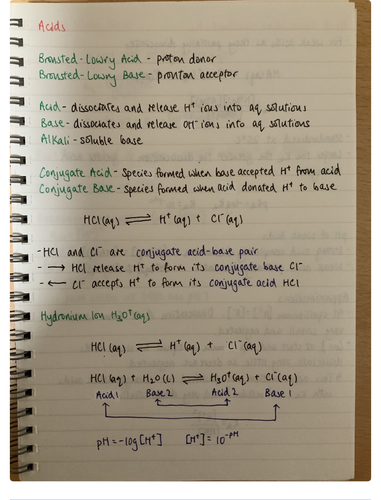 Acids
Bronsted-Lowry Acid - proton donor
Bronsted-Lowry Base - pronton acceptor
Acid - dissociates and release H⁺ ions into aq solutions
Base - dissociates and release OH⁻ ions into aq solutions
Alkali - soluble base
Conjugate Acid - Species formed when base accepted H⁺ from acid
Conjugate Base - Species formed when acid donated H⁺ to base
HCl(aq) ⇌ H⁺(aq) + Cl⁻(aq)
- HCl and Cl⁻ are conjugate acid-base pair
- → HCl release H⁺ to form its conjugate base Cl⁻
- ← Cl⁻ accepts H⁺ to form its conjugate acid HCl
Hydronium Ion H₃O⁺(aq)
HCl(aq) ⇌ H⁺(aq) + Cl⁻(aq)
HCl(aq) + H₂O(l) ⇌ H₃O⁺(aq) + Cl⁻(aq)
Acid 1 Base 2 Acid 2 Base 1
pH = -log[H⁺] [H⁺] = 10⁻ᵖᴴ